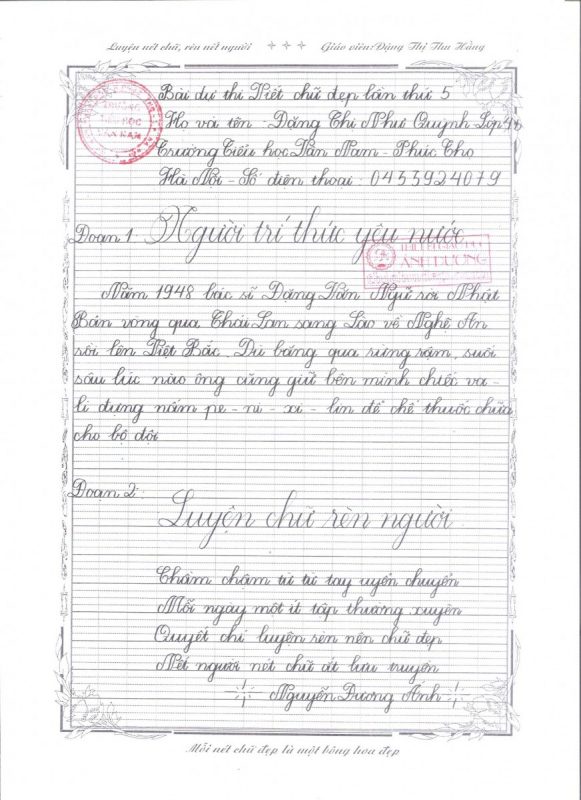 Luyện nét chữ, rèn nết người Giáo viên: Đặng Thị Thu Hằng
Bài dự thi Viết chữ đẹp lần thứ 5
Họ và tên - Đặng Thị Như Quỳnh Lớp 4
Trường Tiểu học Vân Nam - Phúc Thọ
Hà Nội - Số điện thoại: 0433924079
Đoạn 1: Người trí thức yêu nước
ÁNH DƯƠNG
Năm 1948 bác sĩ Đặng Văn Ngữ rời Nhật
Bản vòng qua Thái Lan sang Lào về Nghệ An
rồi lên Việt Bắc. Dù băng qua rừng rậm, suối
sâu lúc nào ông cũng giữ bên mình chiếc va -
li đựng nấm pe - ni - xi - lin để chế thuốc chữa
cho bộ đội
Đoạn 2:
Luyện chữ rèn người
Chầm chậm từ từ tay uyển chuyển
Mỗi ngày một ít tập thường xuyên
Quyết chí luyện rèn nên chữ đẹp
Nết người nét chữ ắt lưu truyền
Nguyễn Dương Ánh
Mỗi nét chữ đẹp là một bông hoa đẹp